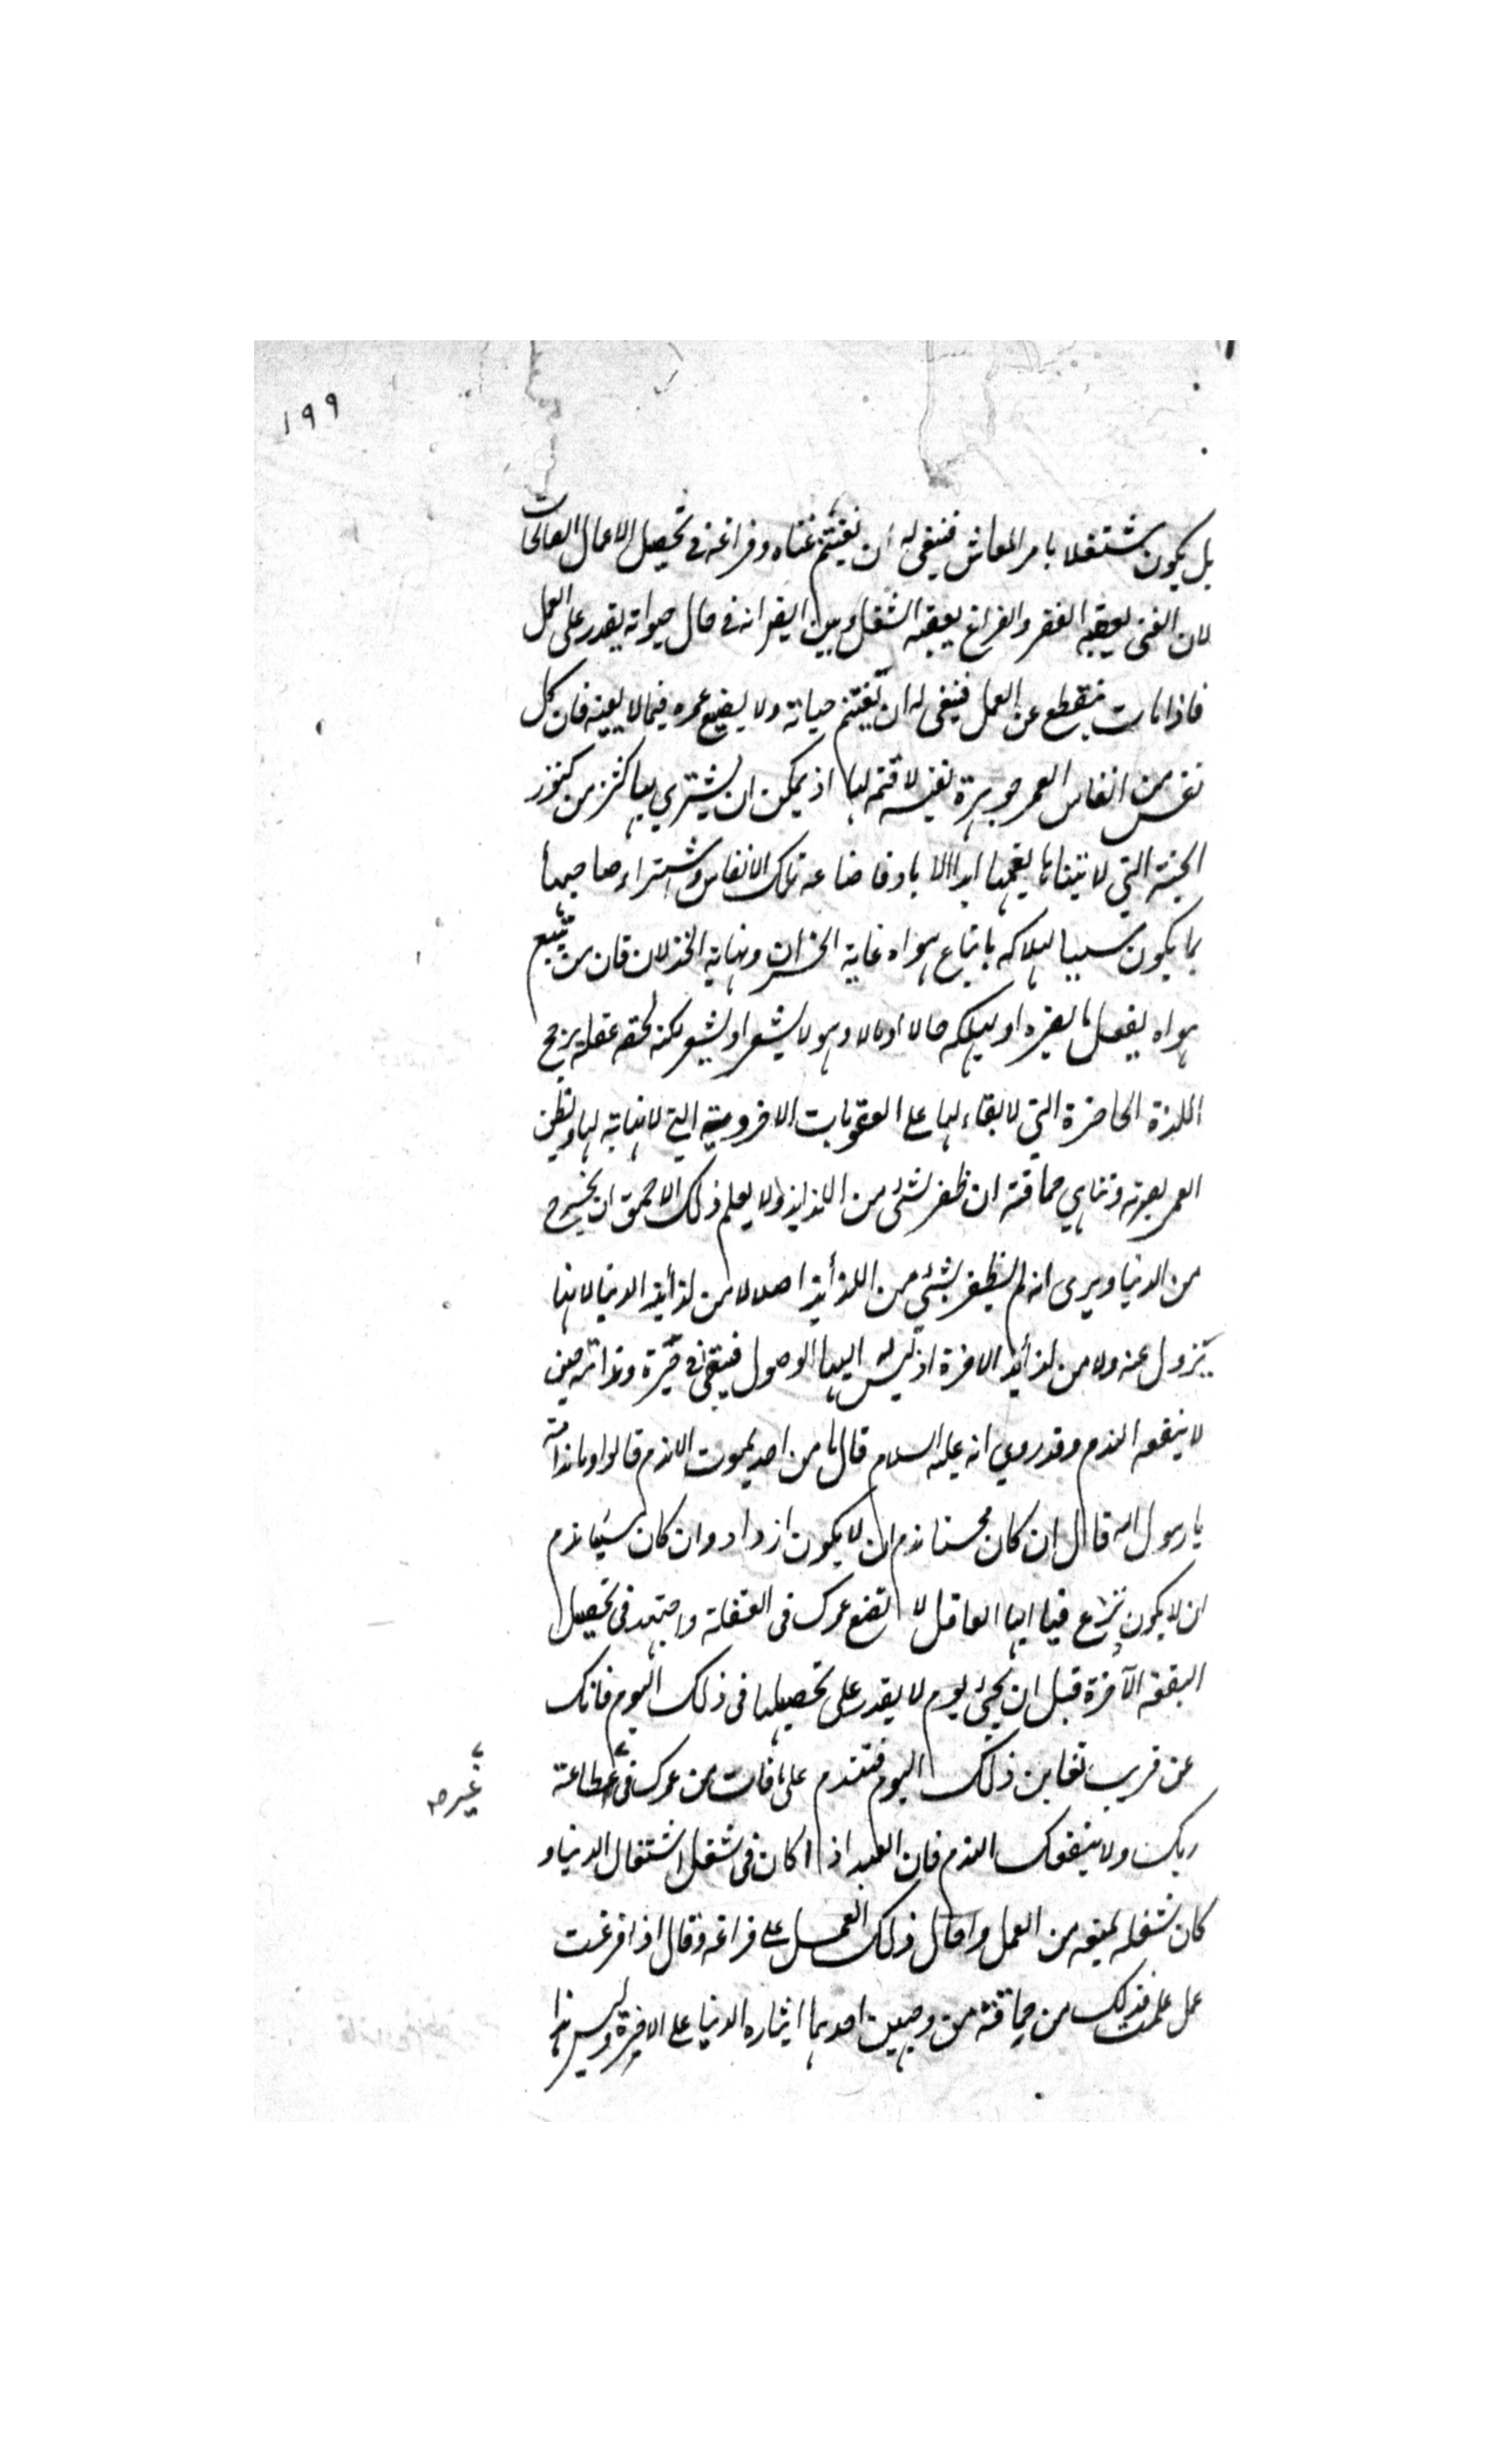 ١٩٩
بل يكون مشتغلا بامر المعاش فينبغي له ان يغتنم غناه وفراغه في تحصيل الاعمال الصالحات
لان الغنى يعقبه الفقر والفراغ يعقبه الشغل وبين ايضا انه في حال حيواته يقدر على العمل
فاذا مات ينقطع عن العمل فينبغي له ان يغتنم حياته ولا يضيع عمره فيما لا يعنيه فان كل
نفس من انفاس العمر جوهرة نفيسة لا قيمة لها اذ يمكن ان يشتري بها كنز من كنوز
الجنة التي لا يتناهى نعيمها ابد الاباد فاضاعة تلك الانفاس واشتراء صاحبها
بما يكون سببا لهلاكه باتباع هواه غاية الخسران ونهاية الخذلان فان من يتبع
هواه يفعل ما يضره او يهلكه حالا او مالا وهو لا يشعر او يشعر لكنه لخفة عقله يرجح
اللذة الحاضرة التي لا بقاء لها على العقوبات الاخروية التي لا نهاية لها ويظن
لعمى بصيرته وتناهي حماقته ان ظفر بشئ من اللذايذ ولا يعلم ذلك الاحمق ان يخرج
من الدنيا ويرى انه لم يظفر بشئ من اللذائذ اصلا لا من لذائذ الدنيا لانها
تزول عنه ولا من لذائذ الاخرة اذ ليس له اليها الوصول فيبقى في حيرة وندامة حين
لا ينفعه الندم وقد روي انه عليه السلام قال ما من احد يموت الا ندم قالوا وما ندامته
يا رسول الله قال ان كان محسنا ندم ان لا يكون ازداد وان كان مسيئا ندم
ان لا يكون نزع فيا ايها العاقل لا تضع عمرك في الغفلة واجتهد في تحصيل
البقعة الآخرة قبل ان يجئ يوم لا يقدر على تحصيلها في ذلك اليوم فانك
عن قريب تعاين ذلك اليوم فتندم على ما فات من عمرك في طاعة
غير صح
ربك ولا ينفعك الندم فان العبد اذا كان في شغل اشتغال الدنيا و
كان شغله يمنعه من العمل واحال ذلك العمل على فراغه وقال اذا فرغت
عمل علمت فذلك من حماقته من وجهين احدهما ايثاره الدنيا على الاخرة وليس هذا